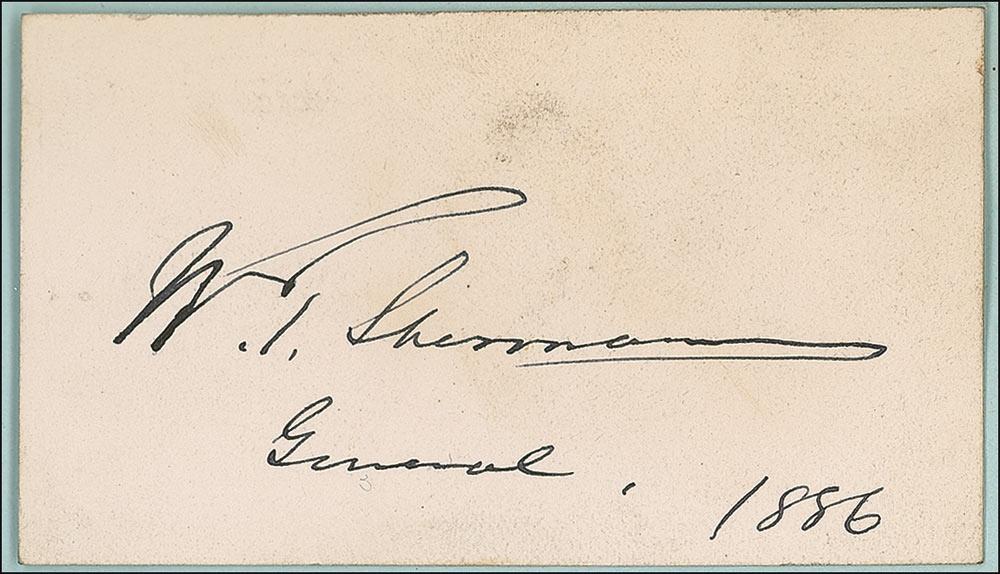 W. T. Sherman
General, 1886